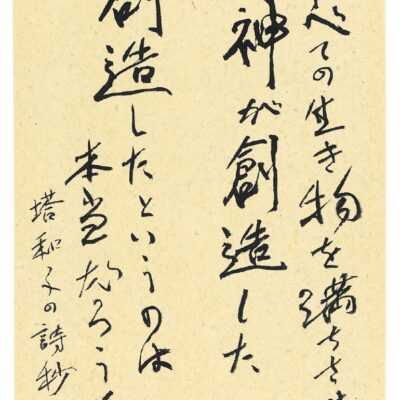 ての生き物を満ちさ
神が創造した
創造したというのは
本当だろう
塔和子の詩抄